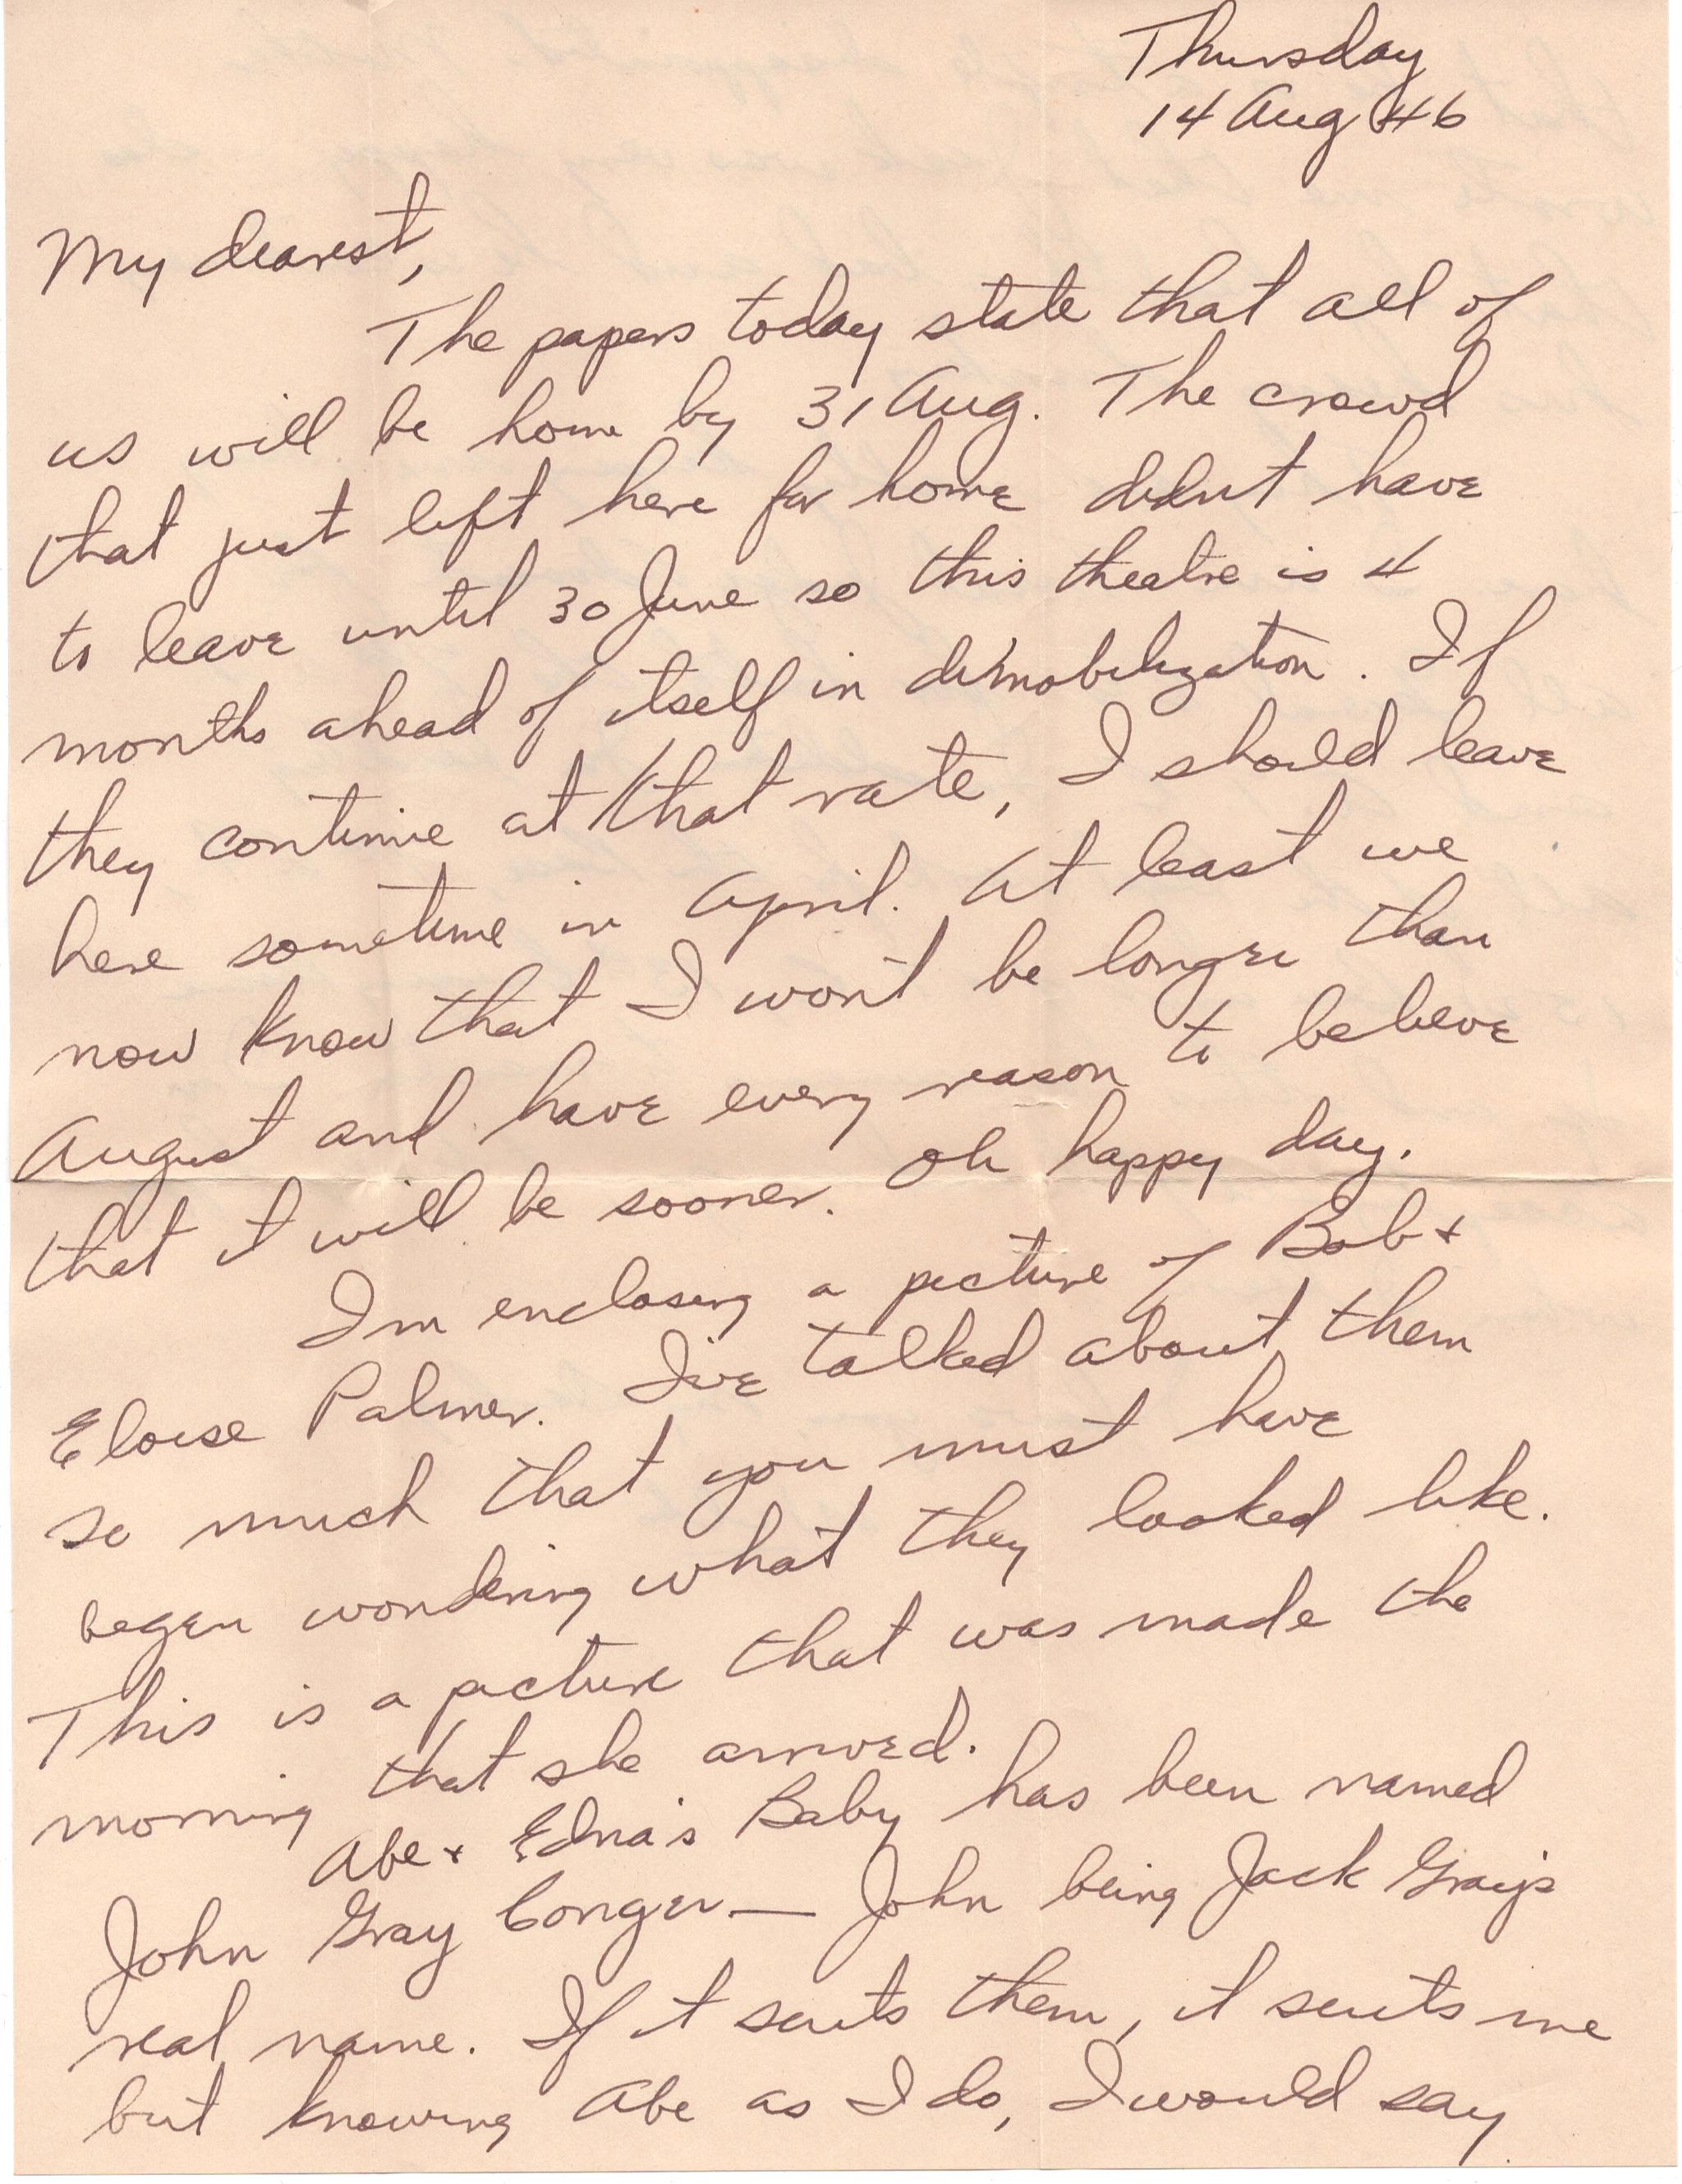 Thursday
14 Aug 46
My dearest,
The papers today state that all of
us will be home by 31 Aug. The crowd
that just left here for home didn't have
to leave until 30 June so this theatre is 4
months ahead of itself in demobilization. If
they continue at that rate, I should leave
here sometime in April. At least we
now know that I won't be longer than
August and have every reason to believe
that it will be sooner. Oh happy day.
I'm enclosing a picture of Bob +
Eloise Palmer. I've talked about them
so much that you must have
began wondering what they looked like.
This is a picture that was made the
morning that she arrived.
Abe + Edna's Baby has been named
John Gray Conger — John being Jack Gray's
real name. If it suits them, it suits me
but knowing Abe as I do, I would say